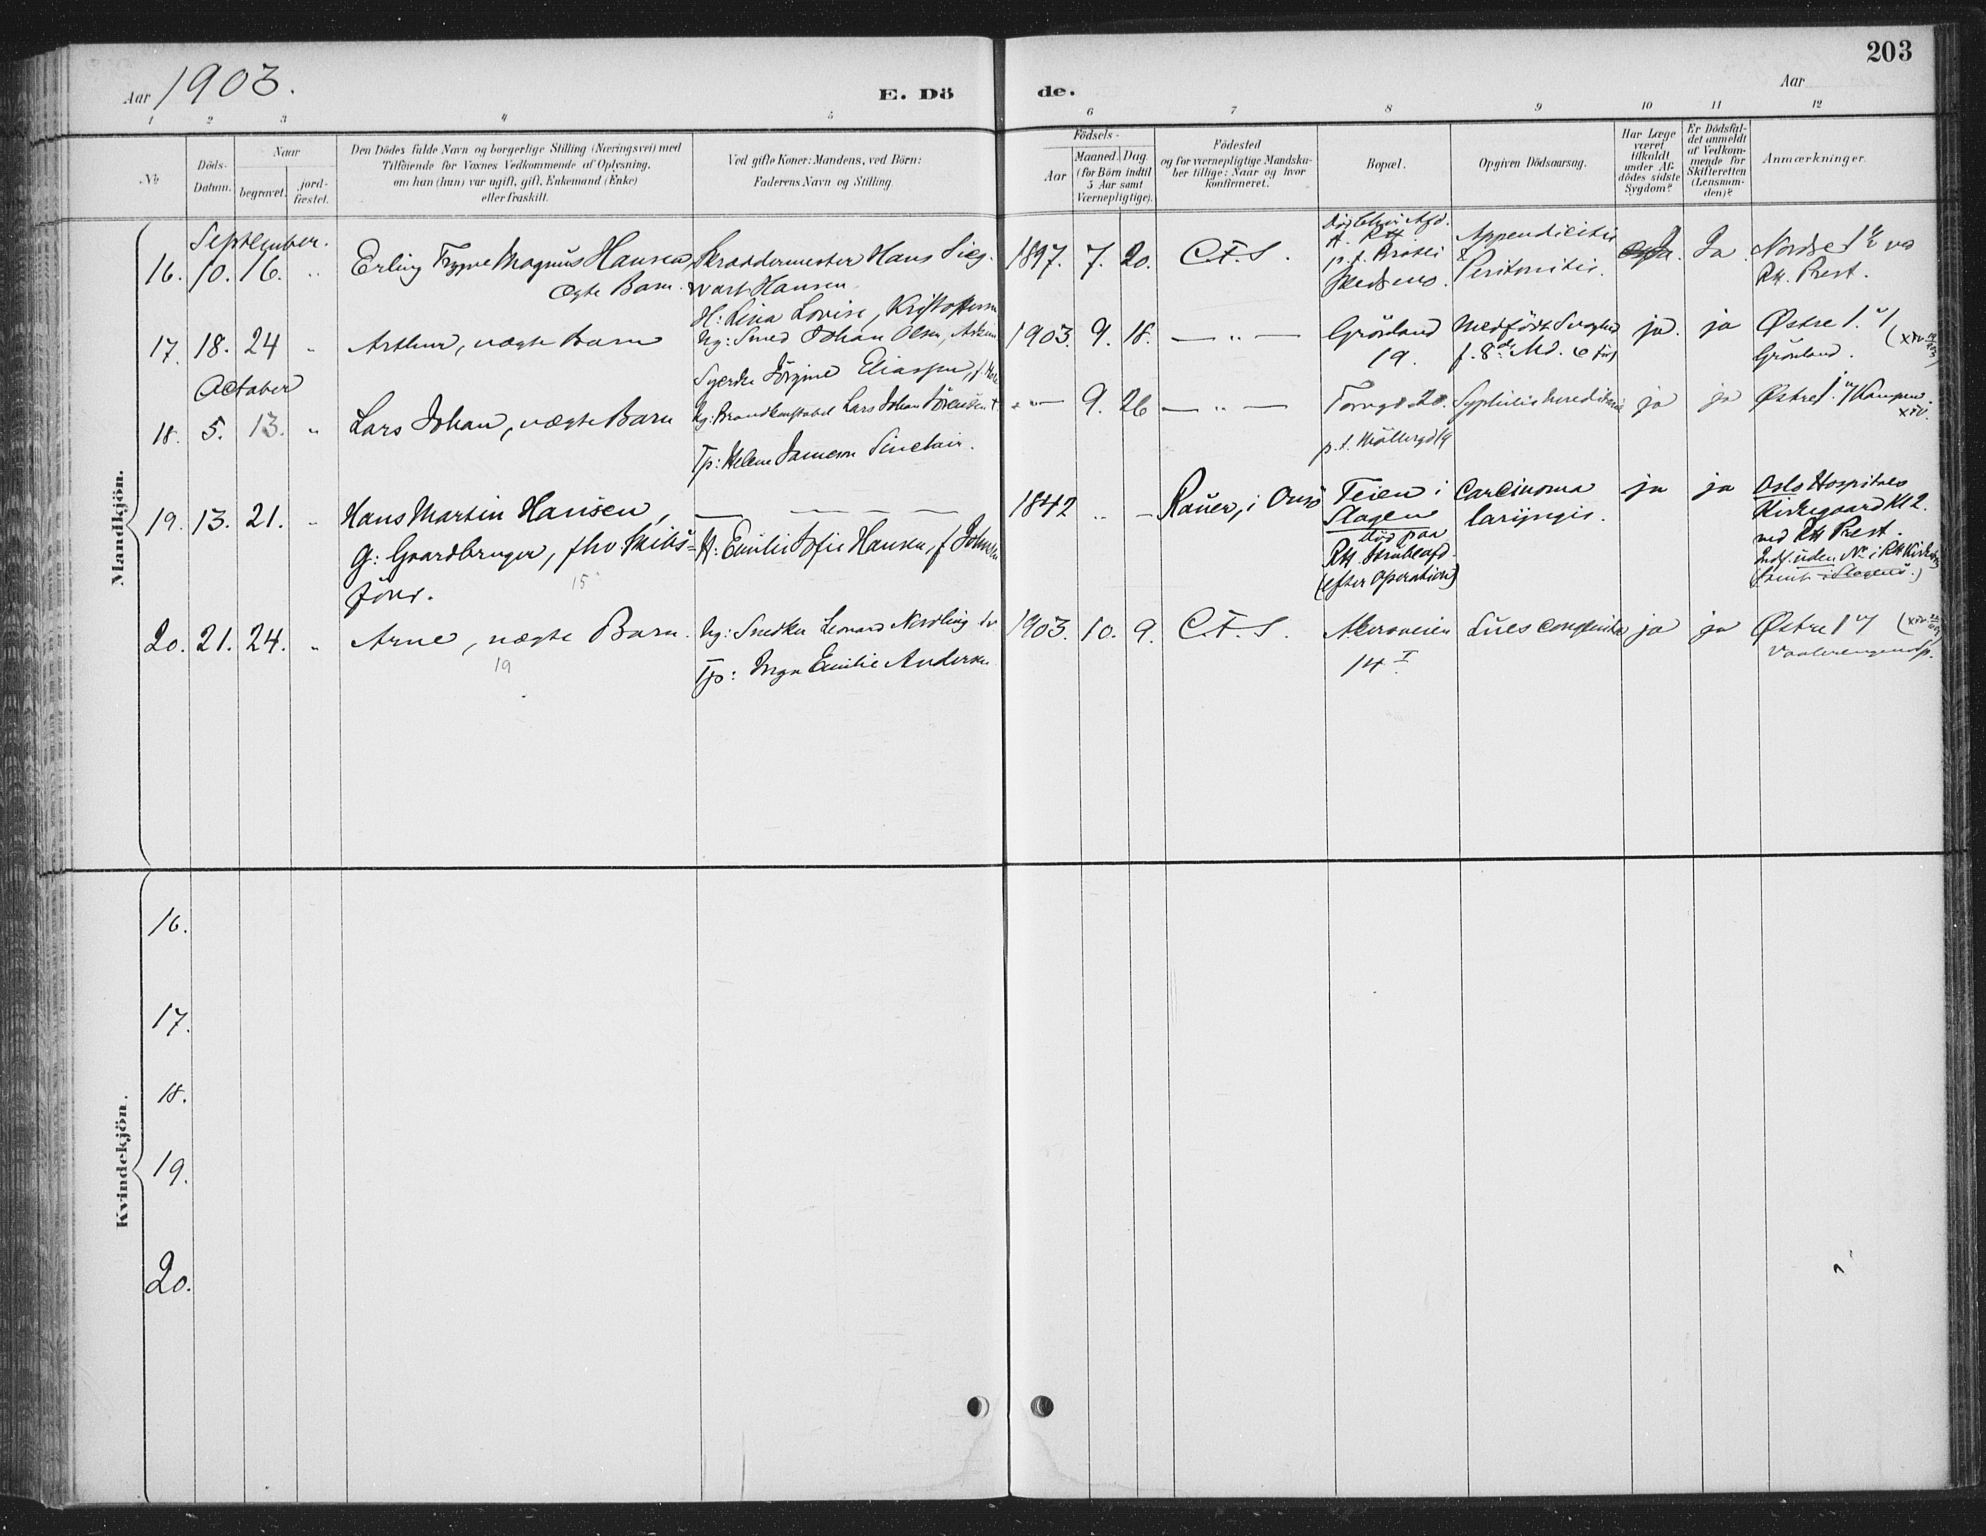 203
Aar 1903.
E. Dö de.
Aar
1 2 3 4 5 6 7 8 9 10 11 12
No
Döds-
Datum.
Naar
begravet.
jord-
fæstet.
Den Dödes fulde Navn og borgerlige Stilling (Næringsvei) med
Tilföiende for Voxnes Vedkommende af Oplysning,
om han (hun) var ugift, gift, Enkemand (Enke)
eller fraskilt.
Ved gifte Koner: Mandens, ved Börn:
Faderens Navn og Stilling.
Födsels-
Aar
Maaned. Dag.
(for Börn indtil
5 Aar samt
Værnepligtige).
Födested
og for værnepligtige Mandska-
ber tillige: Naar og hvor
konfirmeret.
Bopæl.
Opgiven Dödsaarsag.
Har Læge
været
tilkaldt
under Af-
dödes sidste
Sygdom?
Er Dödsfal-
det anmeldt
af Vedkom-
mende for
Skifteretten
(Lensman-
den)?
Anmærkninger.
Mandkjön.
September.
16. 10. 16. " Erling Trygve Magnus Hansen,
ægte Barn.
Skræddermester Hans Sieg-
wart Hansen
H: Lina Lovise, Kristoffersen
1897. 7. 20. C.F.S.
Appendicitis
& Peritonitis.
Ja.
Nordre
RH. Prest.
17. 18. 24 " Arthur, uægte Barn
Ug: Smed Johan Olsen,
Syerske Jörgine Eliassen,
1903. 9. 18. — " —
Grönland
19.
Medfödt Svaghed
f. 8de Md.
ja. ja
Østre 1.
Grönland.
October
18. 5. 13. " Lars Johan, uægte Barn
Ug: Brandkonstabel Lars Johan Sörensen
Tp: Helene Jameson Sinclair.
" — 9. 26 — " —
Torvgd 20.
p.t. Möllergd 19
Syphilis hereditaria
ja ja
Østre 1. Kampen
XIV.
19. 13. 21. " Hans Martin Hansen,
G: Gaardbruger, fhv Skibs-
förer.
15
H: Emilie Sofie Hansen, f Johnsen
1842 " — Rauer, i Onsö
Teien i
Slagen
död paa
RH
(efter Operation)
Carcinoma
laryngis.
ja ja
Oslo Hospitals
Kirkegaard Kl 2.
ved RH Prest.
20. 21. 24. " Arne, uægte Barn.
19
Ug: Snedker Leonard Nordling
Tp: Inga Emilie Andersen
1903. 10. 9. C.F.S.
Akersveien
14 I
Lues congenita
ja ja
Østre 1
Vaalerengens
Kvindekjön.
16.
17.
18.
19.
20.